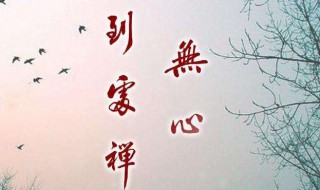 無心
到處禪